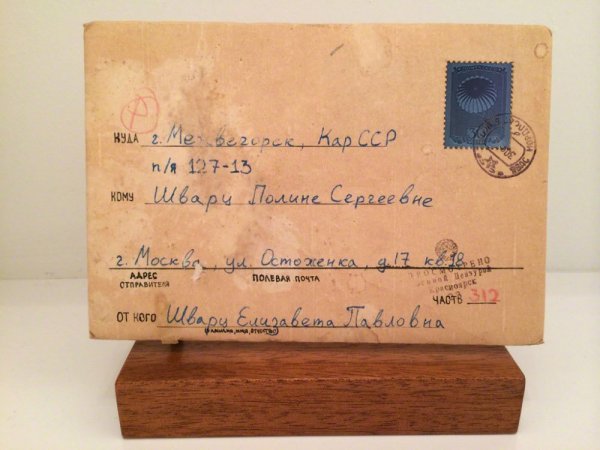 КУДА г. Медвегорск, Кар ССР
п/я 127-13
КОМУ Шварц Полине Сергеевне
г. Москва, ул. Остоженка, д.17 кв.28
АДРЕС ОТПРАВИТЕЛЯ
ПОЛЕВАЯ ПОЧТА
ПРОСМОТРЕНО
Военной Цензурой
Красноярск
ЧАСТЬ 312
ОТ КОГО Шварц Елизавета Павловна
(фамилия, имя, отчество)